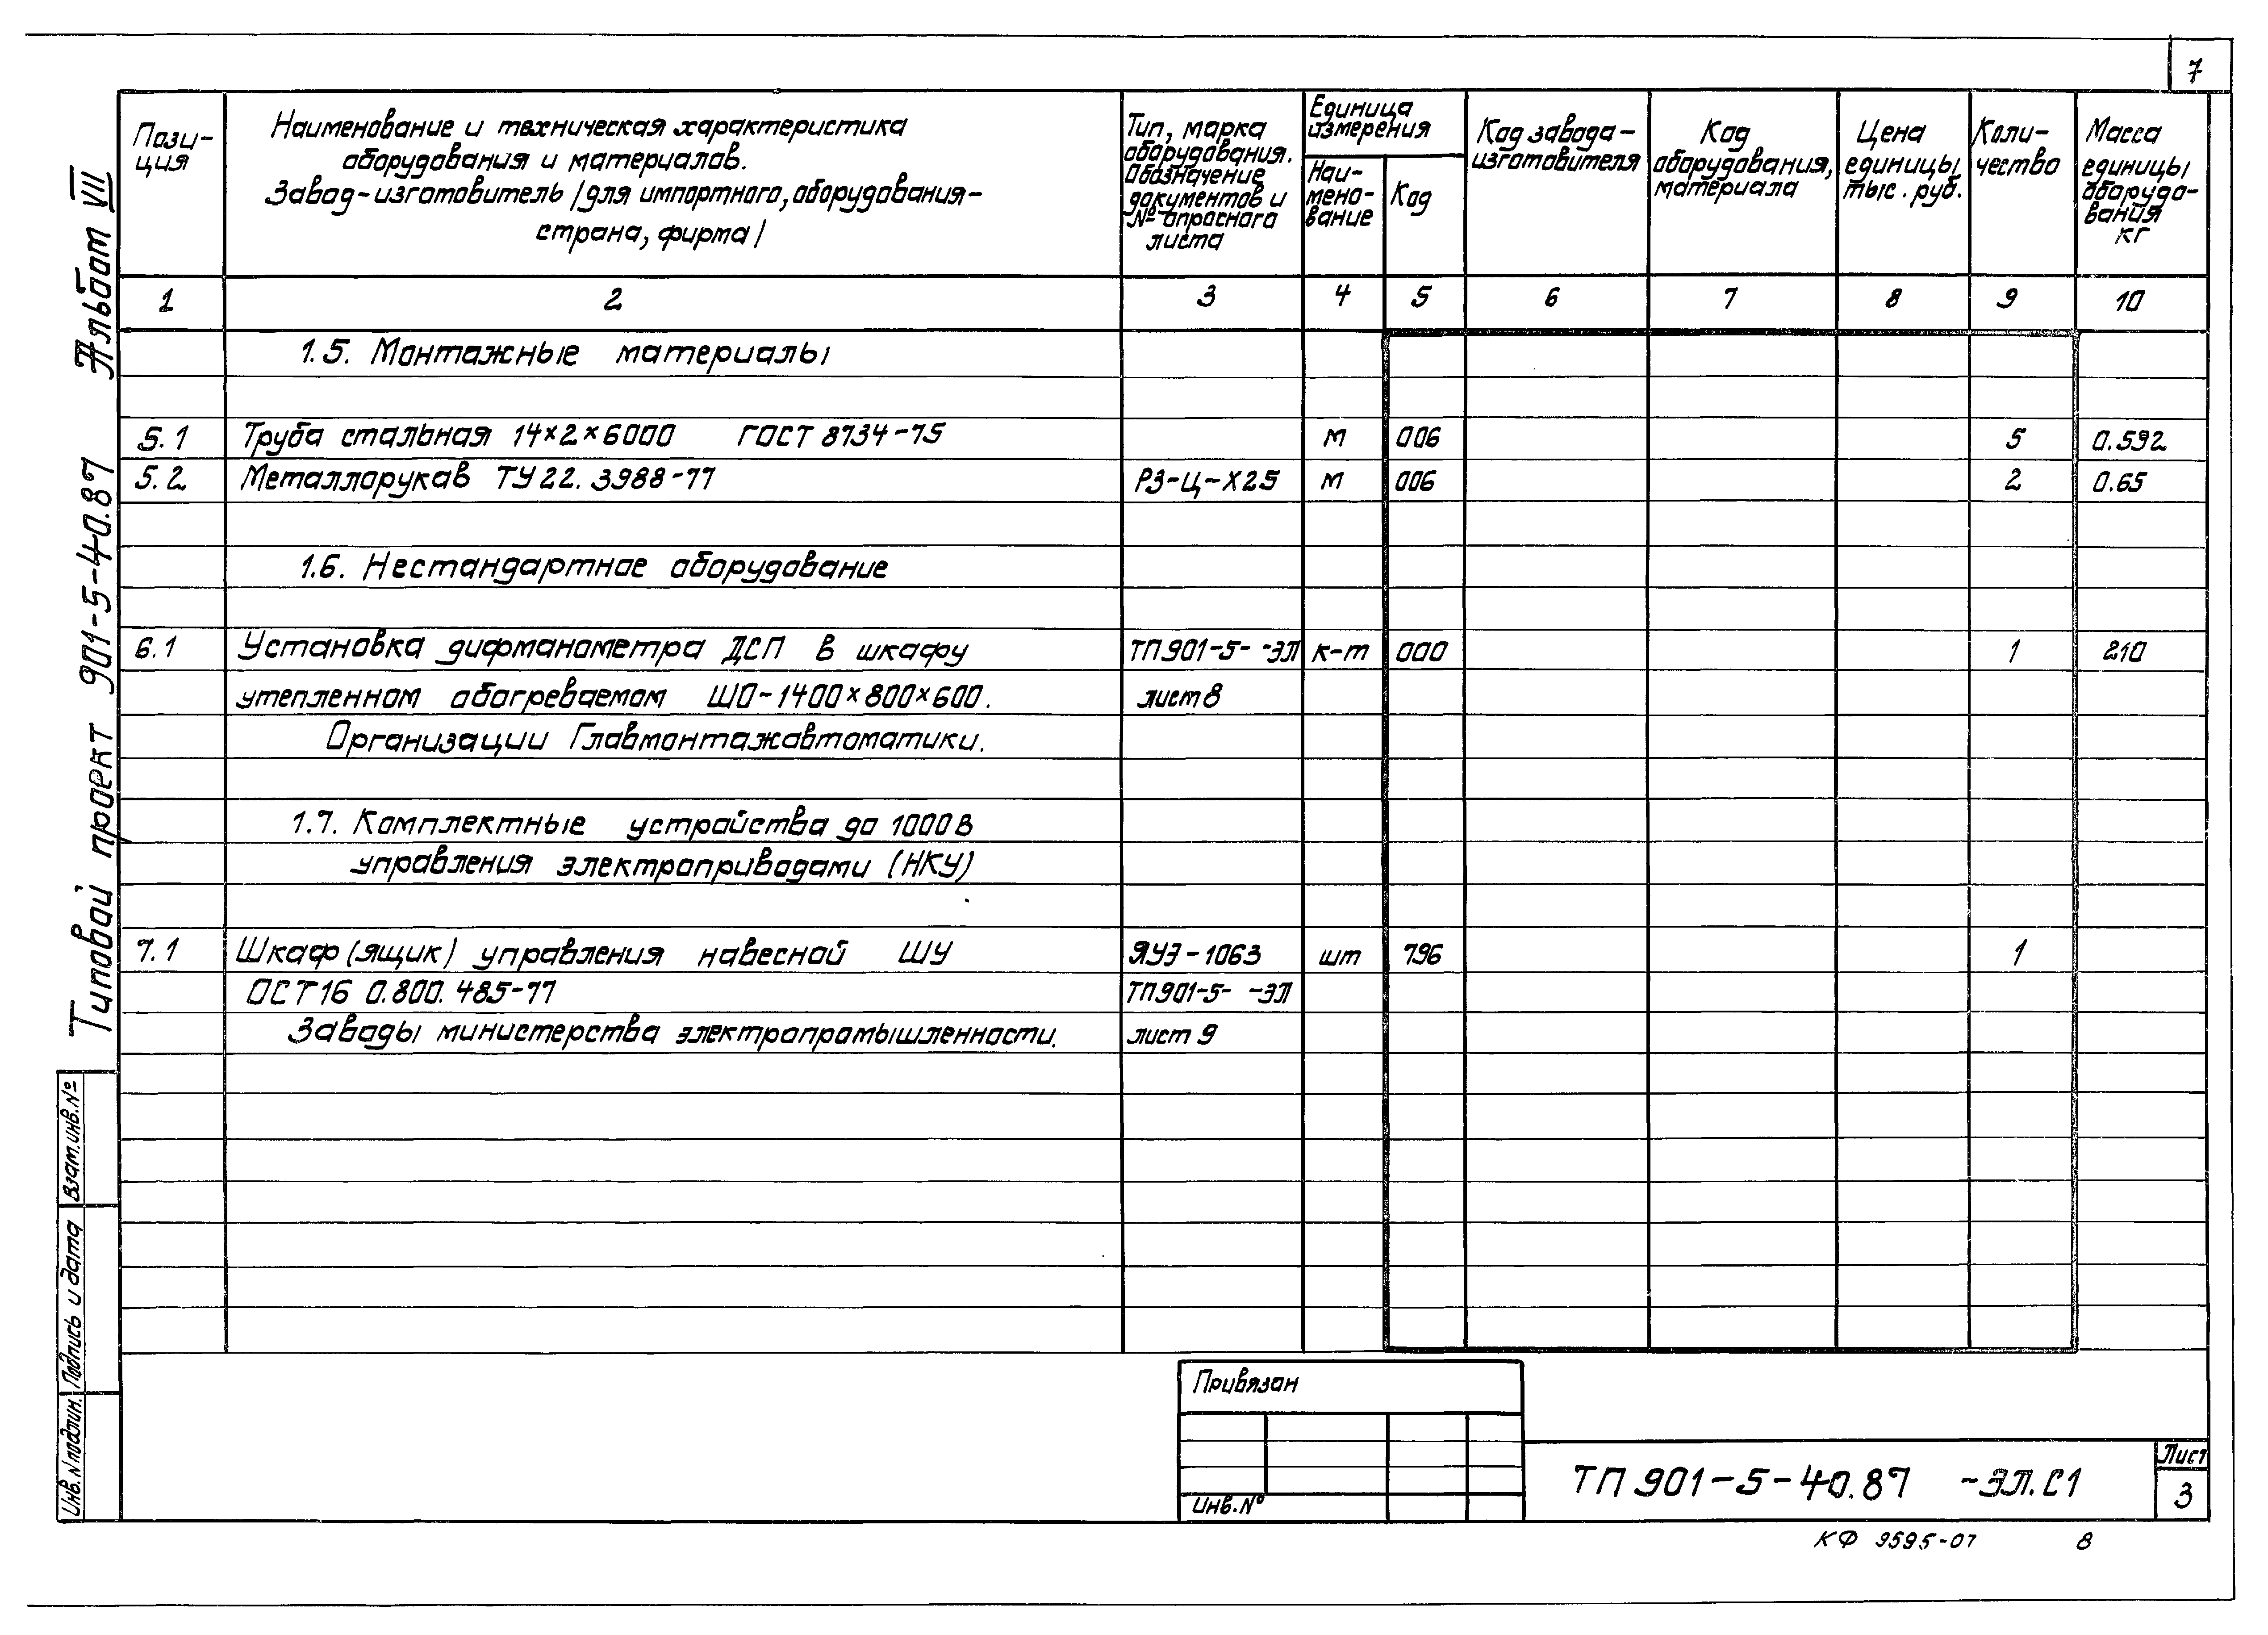 7
Типовой проект 901-5-40.87 Альбом VII
Пози-
ция
Наименование и техническая характеристика
оборудования и материалов.
Завод-изготовитель /для импортного, оборудования-
страна, фирма/
Тип, марка
оборудования.
Обозначение
документов и
№ опросного
листа
Единица
измерения
Наи-
мено-
вание
Код
Код завода-
изготовителя
Код
оборудования,
материала
Цена
единицы
тыс. руб.
Коли-
чество
Масса
единицы
оборудо-
вания
кг
1 2 3 4 5 6 7 8 9 10
1.5. Монтажные материалы
5.1 Труба стальная 14×2×6000 ГОСТ 8734-75 м 006 5 0.592
5.2 Металлорукав ТУ 22. 3988-77 РЗ-Ц-Х25 м 006 2 0.65
1.6. Нестандартное оборудование
6.1 Установка дифманометра ДСП в шкафу ТП901-5- -ЭЛ к-т 000 1 210
утепленном обогреваемом ШО-1400×800×600. лист 8
Организации Главмонтажавтоматики.
1.7. Комплектные устройства до 1000 В
управления электроприводами (НКУ)
7.1 Шкаф (ящик) управления навесной ШУ ЯУЭ-1063 шт 796 1
ОСТ 16 0.800. 485-77 ТП901-5- -ЭЛ
Заводы министерства электропромышленности. лист 9
Взам. инв. №
Подпись и дата
Инв. N подлин.
Привязан
Инв. №
ТП 901-5-40.87 -ЭЛ.С1
Лист
3
КФ 9595-07 8